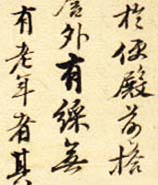 於便殿前搭
后外有綵無
有老年者其